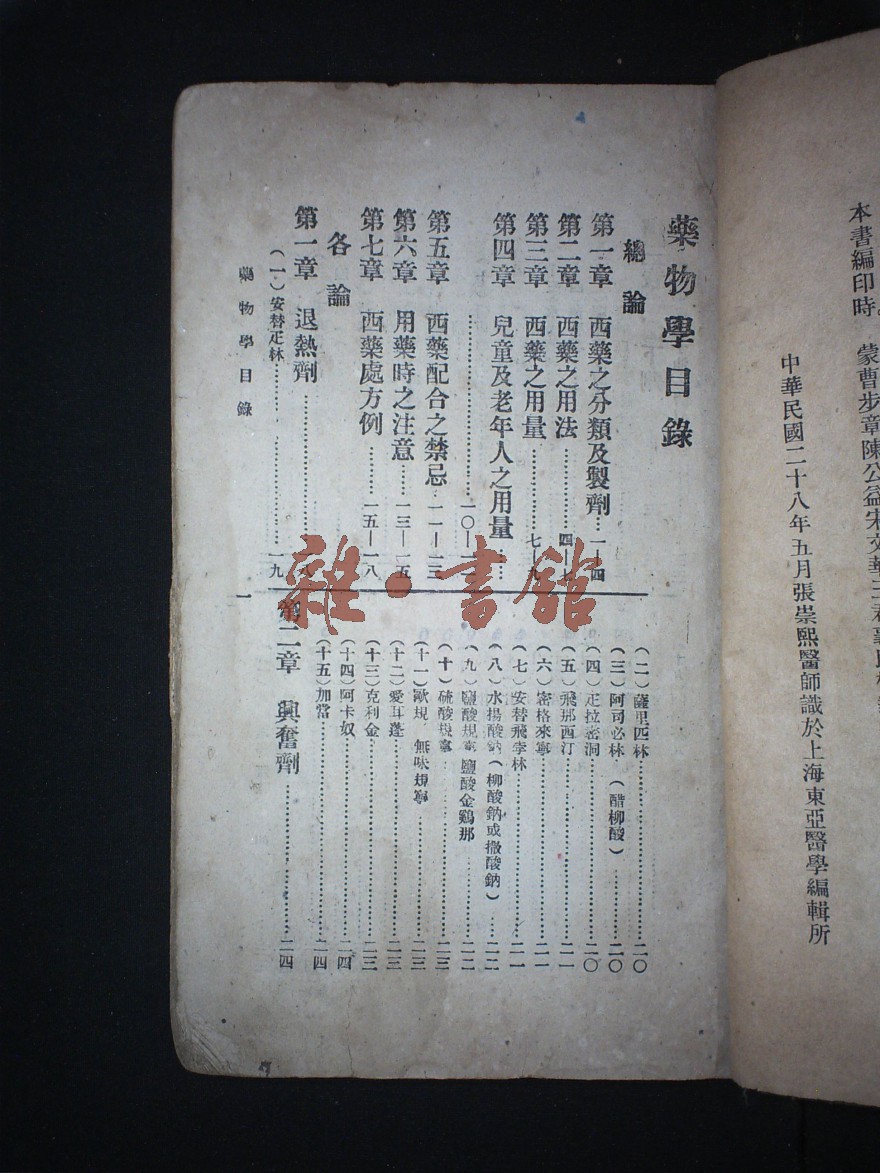 本書編印時 蒙曹步章陳公益宋文華三君襄
中華民國二十八年五月張崇熙醫師識於上海東亞醫學編輯所
藥物學目錄
總論
第一章 西藥之分類及製劑…一—四
第二章 西藥之用法………四—七
第三章 西藥之用量………七—九
第四章 兒童及老年人之用量…
………一〇—一一
第五章 西藥配合之禁忌·一一—一三
第六章 用藥時之注意……一三—一五
第七章 西藥處方例………一五—一八
各論
第一章 退熱劑………八
(一)安替疋林………一九
(二)薩里匹林………二〇
(三)阿司必林(醋柳酸)………二〇
(四)疋拉密洞………二〇
(五)飛那西汀………二一
(六)密格來寧………二一
(七)安替飛李林………二一
(八)水揚酸鈉(柳酸鈉或撒酸鈉)……二二
(九)鹽酸規寧 鹽酸金鷄那………二二
(十)硫酸規寧………二三
(十一)歐規 無味規寧………二三
(十二)愛耳蓬………二三
(十三)克利金………二三
(十四)阿卡奴………二四
(十五)加當………二四
第二章 興奮劑………二四
藥物學目錄
一
雜·書館